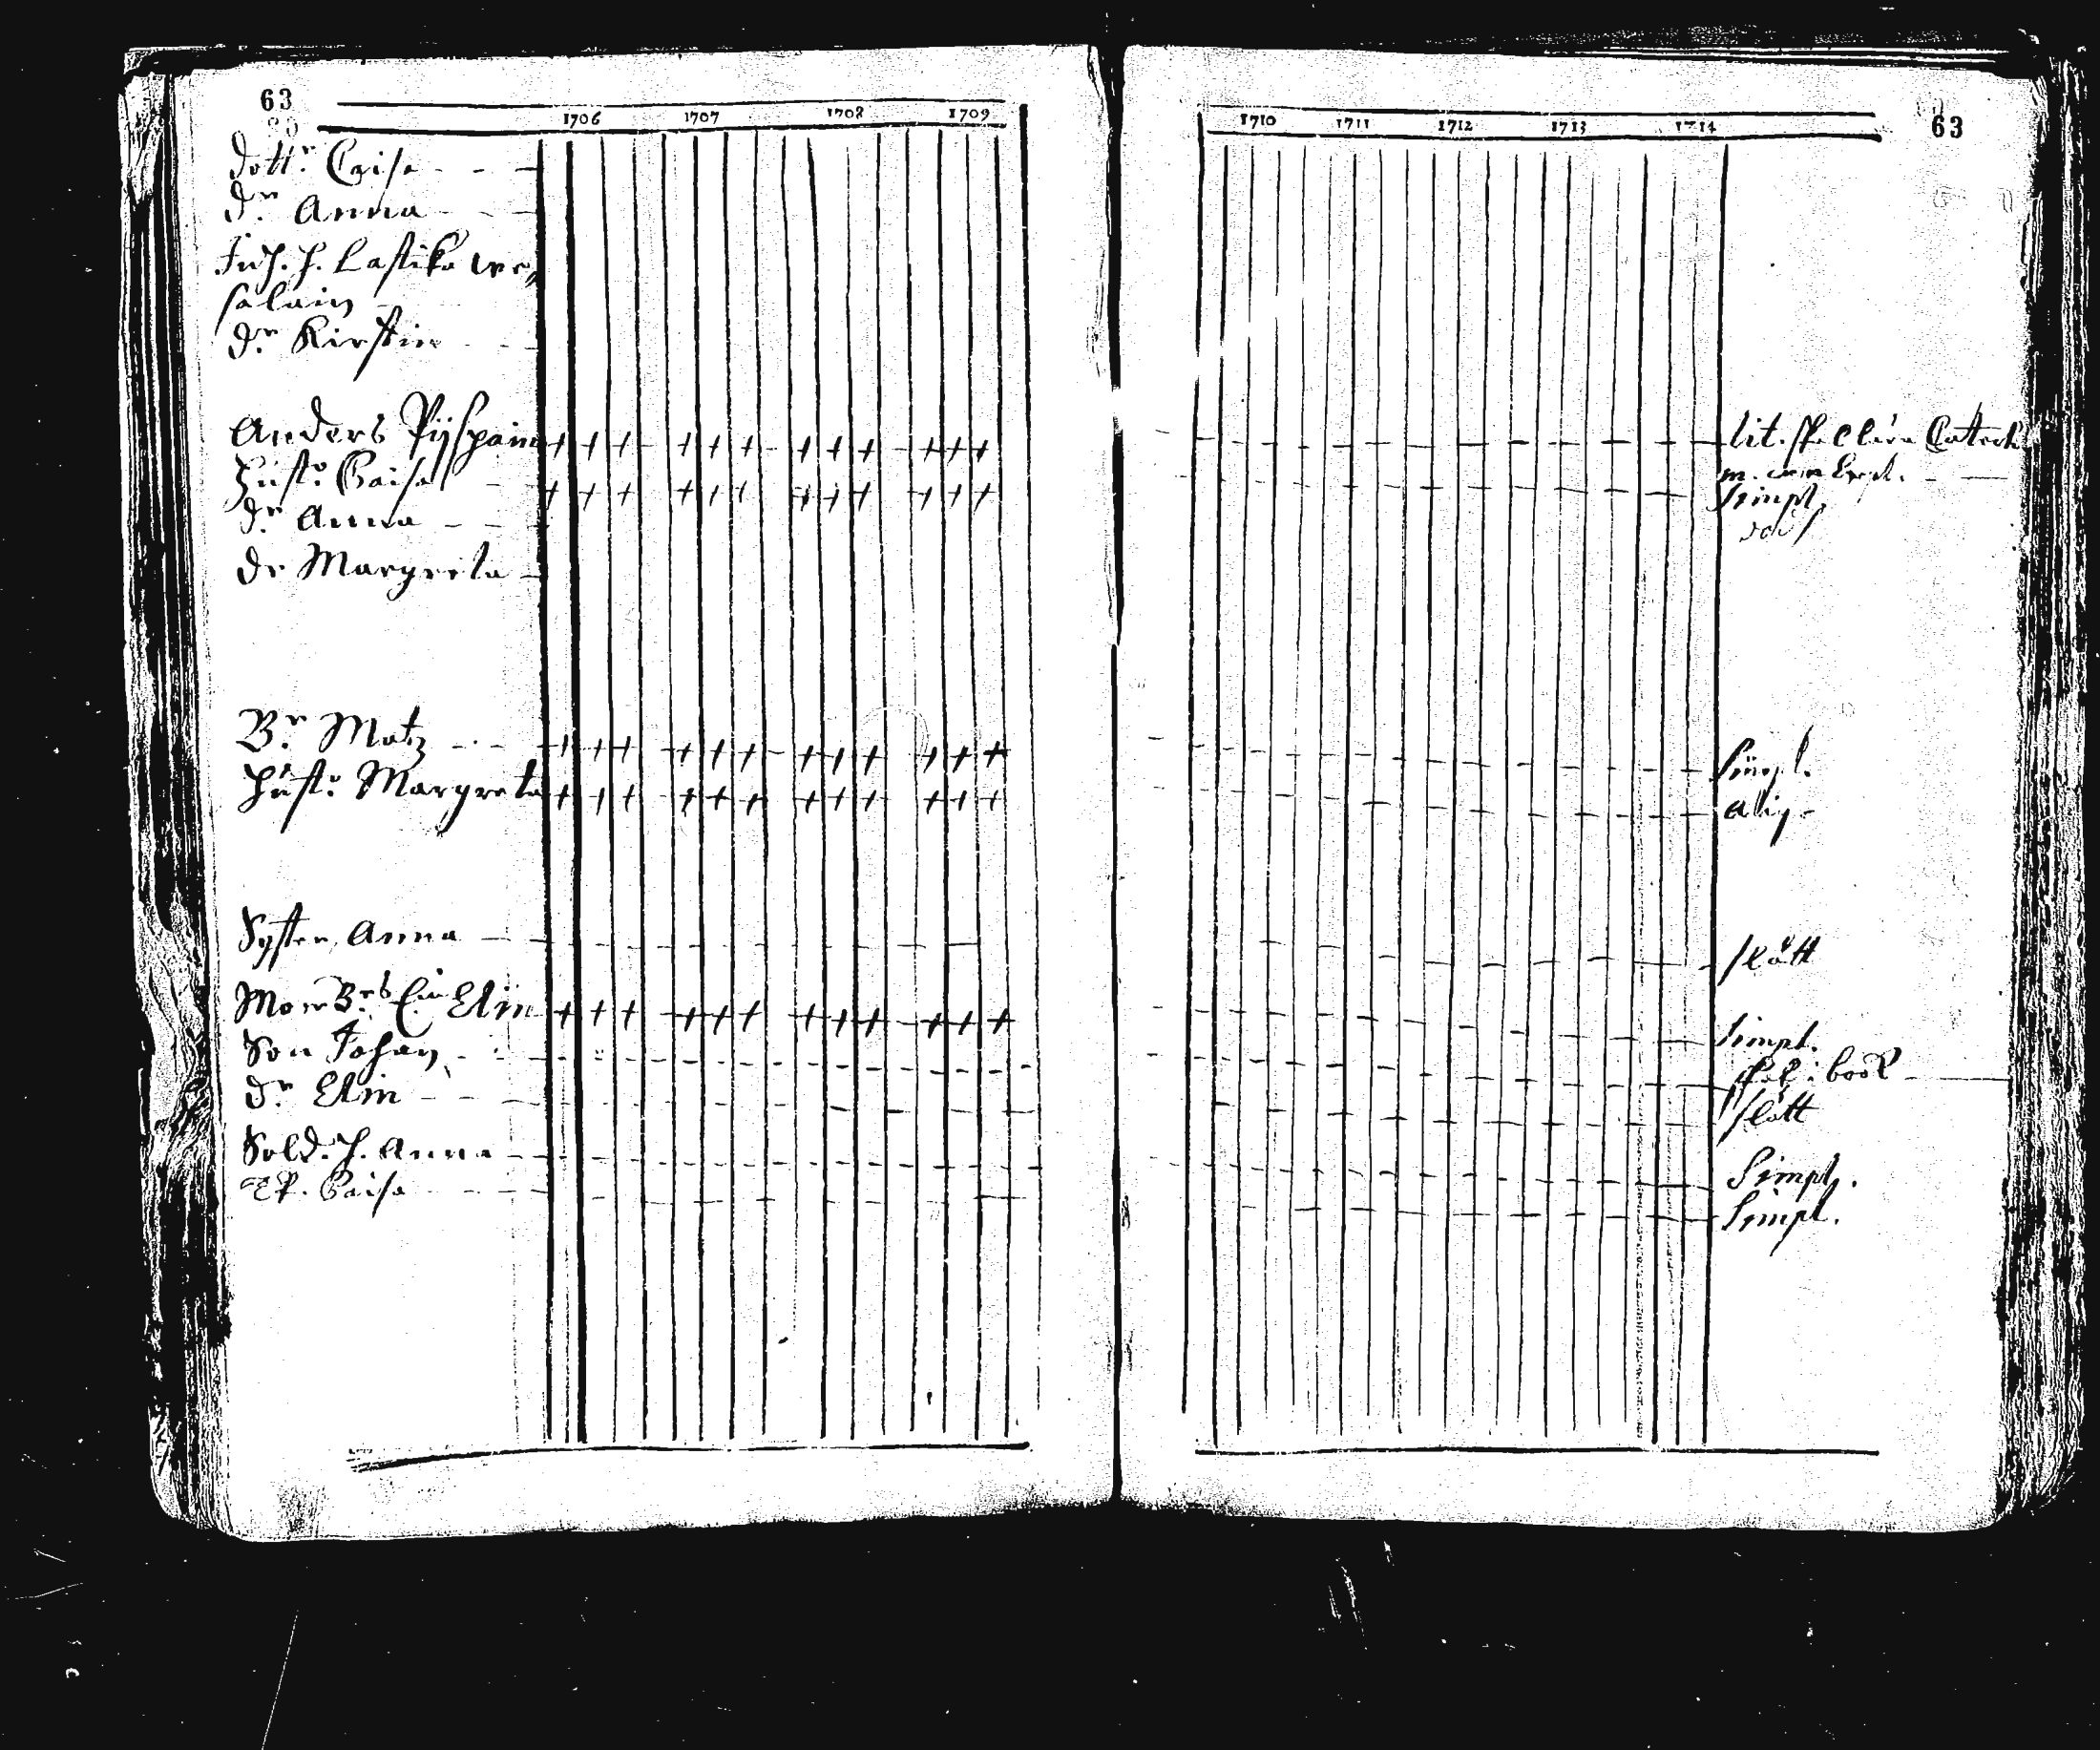 63
1706 1707 1708 1709
Dottr: Caisa
Dr Anna
Inh. h. Lastika we,
salain
Dr Kirstin
Anders Pijspain
+ + + + + + + + + + + +
Hust: Caisa
+ + + + + + + + + + + +
Dr Anna
Dr Margreta
Br Matz
+ + + + + + + + + + + +
Hust: Margreta
+ + + + + + + + + + + +
Syster Anna
Mor Brs Elin
+ + + + + + + + + + + +
Son Johan
Dr Elin
Sold. h. Anna
Caisa
1710 1711 1712 1713 1714 63
lit. Catech
m.
Simpl.
Simpl.
aliq.
slätt
Simpl.
book
slätt
Simpl.
Simpl.